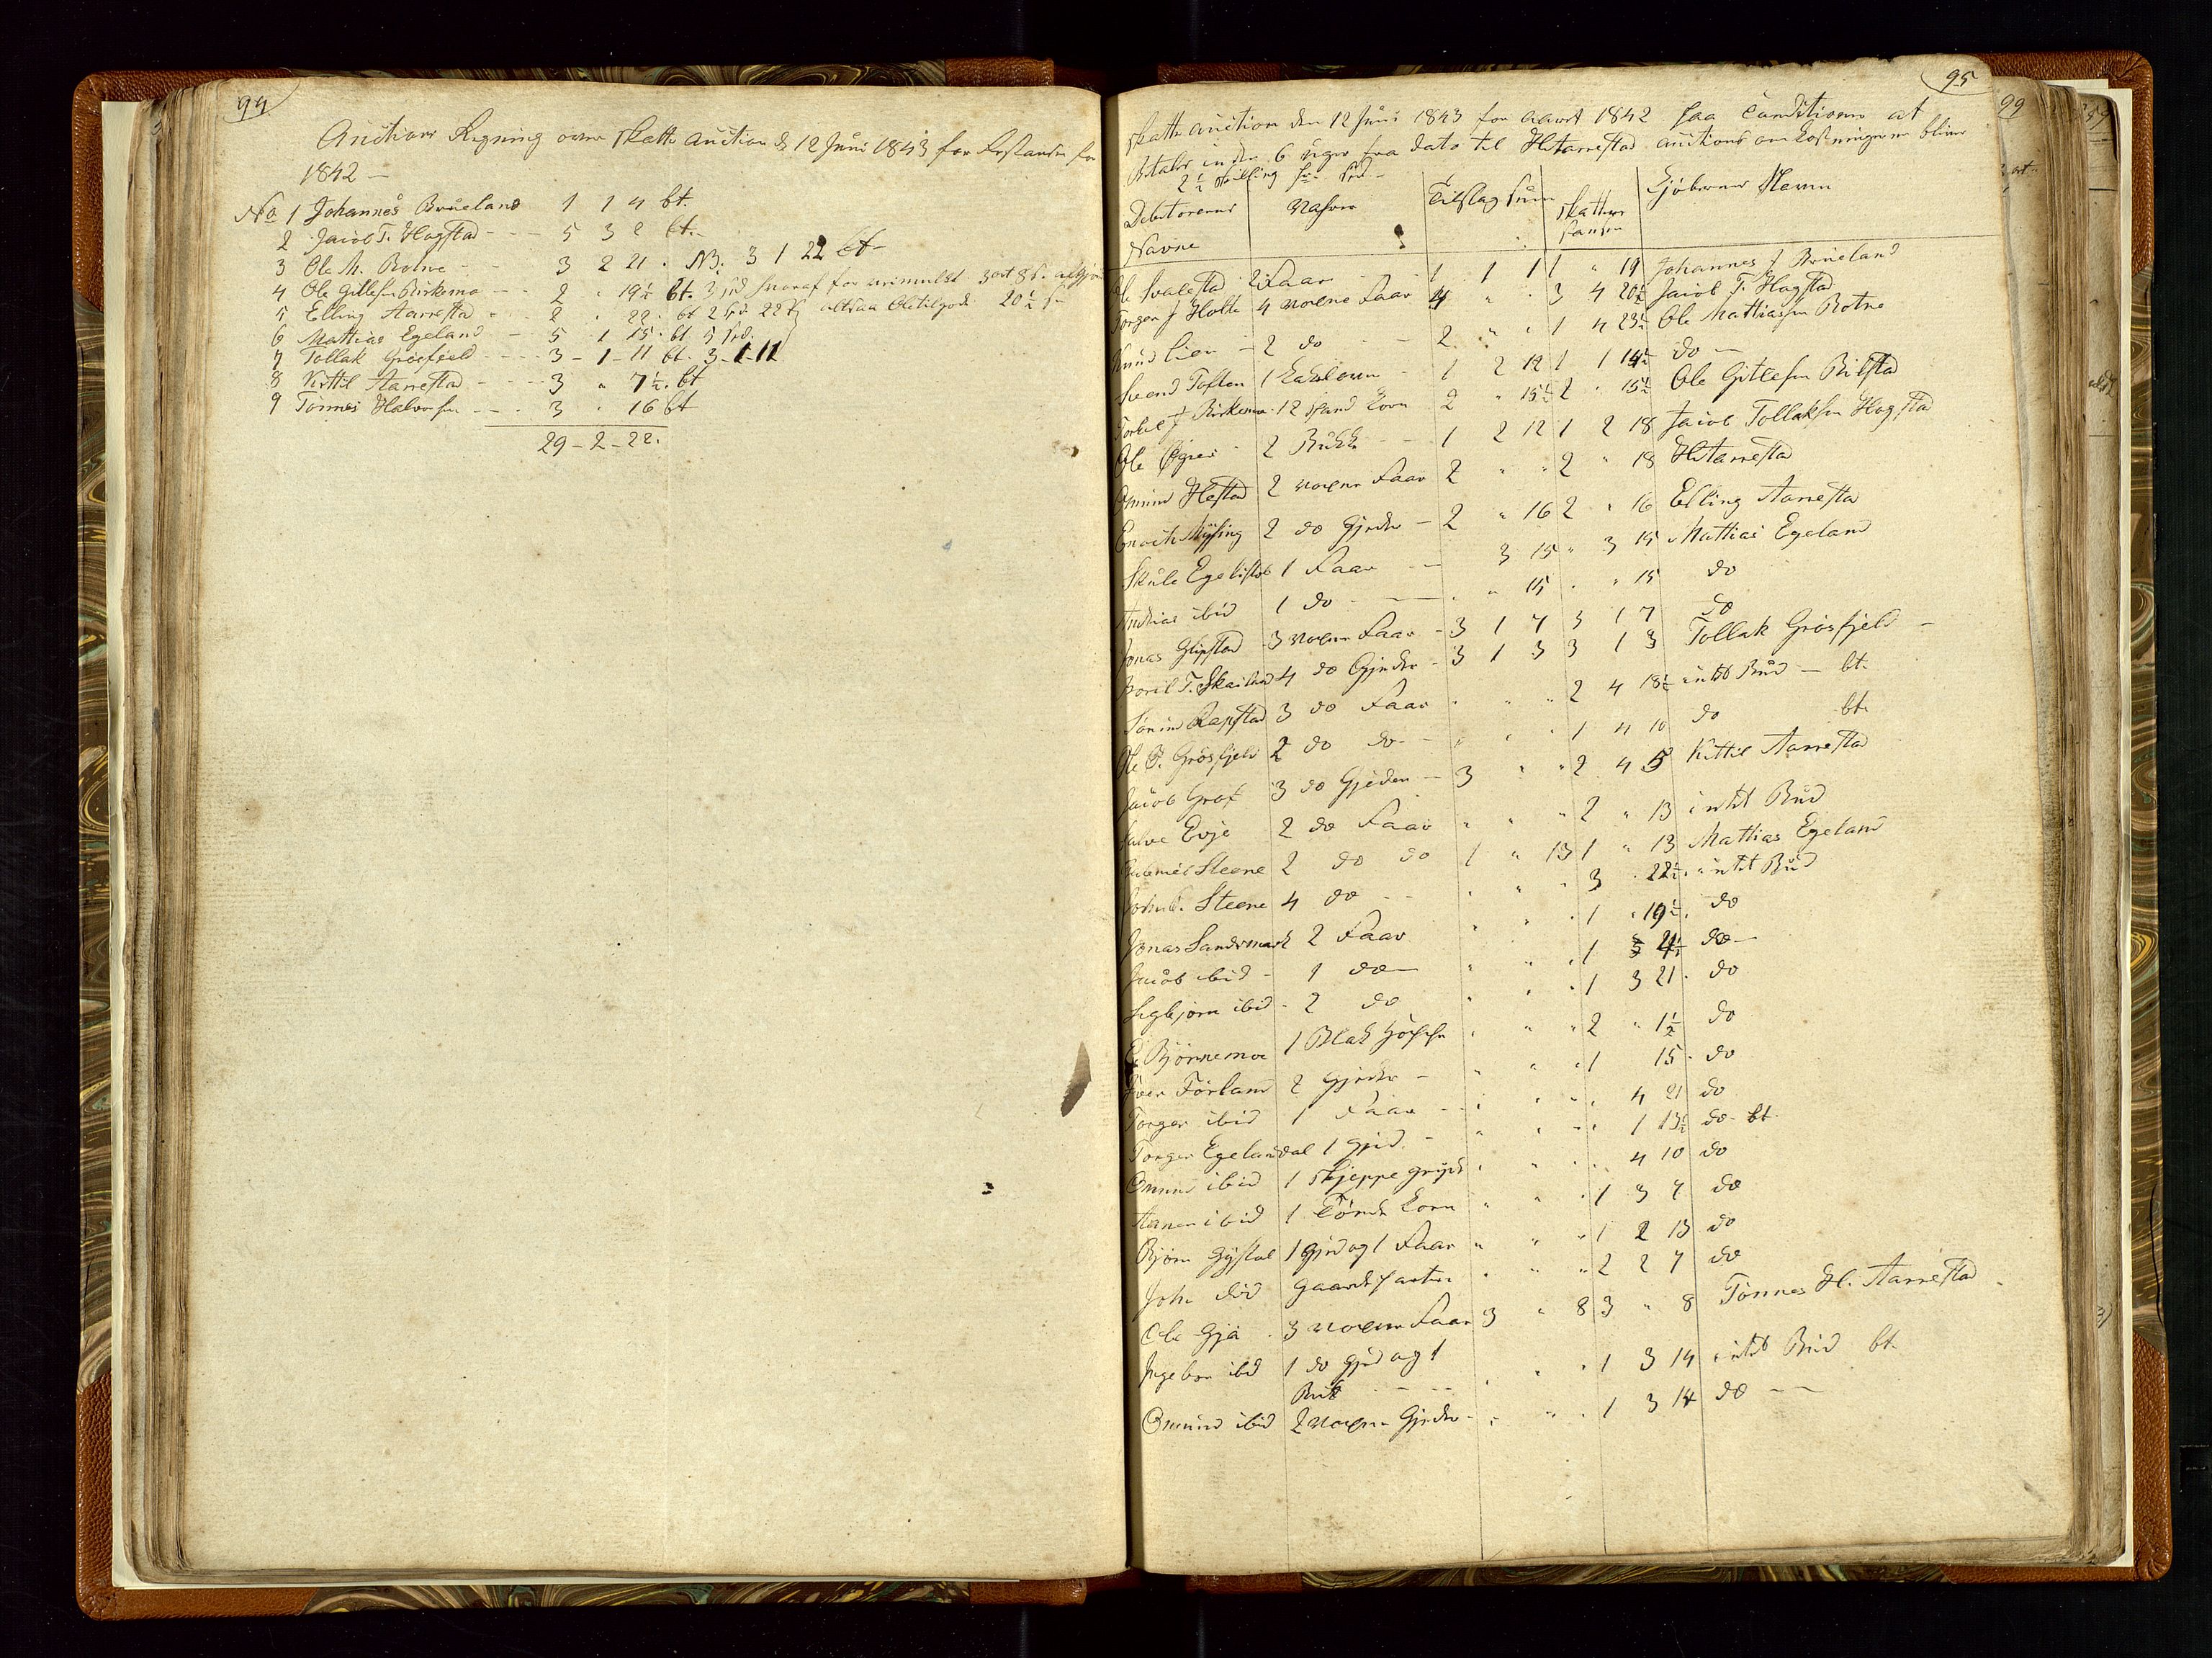 94
Auctions Regning over Skatte Auction d 12 Juni 1843 for Restancen for
1842 —
No 1 Johannes Brueland 1 1 4 bt.
2 Jacob T. Hagstad - - - 5 3 2 bt.-
3 Ole M. Rotne - - 3 2 21 . NB: 3 1 22 bt-
4 Ole Gitlesen Birkemo - 2 " 19½ bt. 3 spd hvoraf for 3 ort 8 s.
5 Elling Aarrestad - 2 " 22 - bt 2 Spd. 22 s altsaa Ole tilgode 20½ s-
6 Mattias Egeland - - 5 1 15 . bt 5 spd.
7 Tollak Grøsfjeld - - - 3 - 1 - 11 bt. 3-1-11
8 Kittil Aarrestad - - - - 3 " 7½. bt
9 Tönnes Halvorsen - - . 3 . 16 bt
29-2-22.
95
Skatte Auction den 12 Juni 1843 for Aaret 1842 paa Conditioner at
Betales inden 6 Uger fra dato til HAarrestad Auctions omkostningerne bliver
2½ skilling pr. Spd-
Debitorernes Navne | | Tilslag Sum | | Kjöbernes Navn
Ole Svalestad | 2 Faar - - | 1 . 1 1 | 1 " 19 | Johannes J Brueland
Torger J Holte | 4 voxne Faar | 4 " . | 3 4 20½ | Jacob T. Hagstad
Knud Lien - | 2 do - - | 2 " " | 1 4 23½ | Ole Mattiassen Rotne
Svend Toften | 1 - | 1 2 12 | 1 1 14½ | do -
Torkel J Birkemo | 12 spand Korn | 2 " 15½ | 2 . 15½ | Ole Gitlesen Bilstad
Ole Øgrei - | 2 Bukke - - | 1 2 12 | 1 2 18 | Jacob Tollaksen Hagstad
Omund Hestad | 2 voxne Faar | 2 " " | 2 " 18 | HAarrestad
Enoch Mysing | 2 do Gjeder - | 2 " 16 | 2 " 16 | Elling Aarrestad
Skule Egelistøl | 1 Faar - - | 3 15 | " 3 15 | Mattias Egeland
Andreas ibid | 1 do - - | . " 15 | . " 15 | do
Jonas Glipstad | 3 voxne Faar - | 3 1 7 | 3 1 7 | do
Boril T. Skailand | 4 do Gjeder - | 3 1 3 | 3 1 3 | Tollak Grøsfjeld -
Sören Rapstad | 3 do Faar | . " " | 2 4 18½ | intet Bud — bt.
Ole P. Grøsfjeld | 2 do do - - | " . . | 1 4 10 | do bt.
Jacob Grøf | 3 do Gjeder - | 3 " " | 2 4 5 | Kittil Aarrestad
Salve Evje | 2 do Faar | " " " | 2 " 13 | intet Bud
Gabriel Steene | 2 do do | 1 " 13 | 1 " 13 | Mattias Egeland
John . Steene | 4 do - - | . " . | 3 . 22½ | intet Bud
Jonas Sandsmark | 2 Faar | " " . | 1 " 19½ | do
Jacob ibid - | 1 do — | " " . | 1 3 4½ | do —
Sigbjørn ibid - | 2 do | " " . | 1 3 21 . | do
E Bjönnemoe | 1 | . " " | 2 " 1½ | do
Iver Förland | 2 Gjeder - | " " " | 1 15 . | do
Torger ibid | 1 Faar - - | . " " | 4 21 | do
Torger Egelandsdal | 1 Gjed. - | " " " | 1 13½ | do - bt.
Omund ibid | 1 skjeppe gryn | . " " | 4 10 | do
Aanen ibid | 1 Tönde Korn | " " . | 1 3 7 | do
Bjørn Gystøl | 1 Gjed og 1 Faar | " " " | 1 2 13 | do
John ibid | Gaardsparten | . " " | 2 2 7 | do
Ole Gja . | 3 voxne Faar | 3 " 8 | 3 " 8 | Tönnes H. Aarrestad
Ingebor ibid | 1 do Gjed og 1 | . " . | 1 3 14 | intet Bud bt.
Buk - - -
Omund ibid | 2 voxne Gjeder - | . " . | 1 3 14 | do - -
99